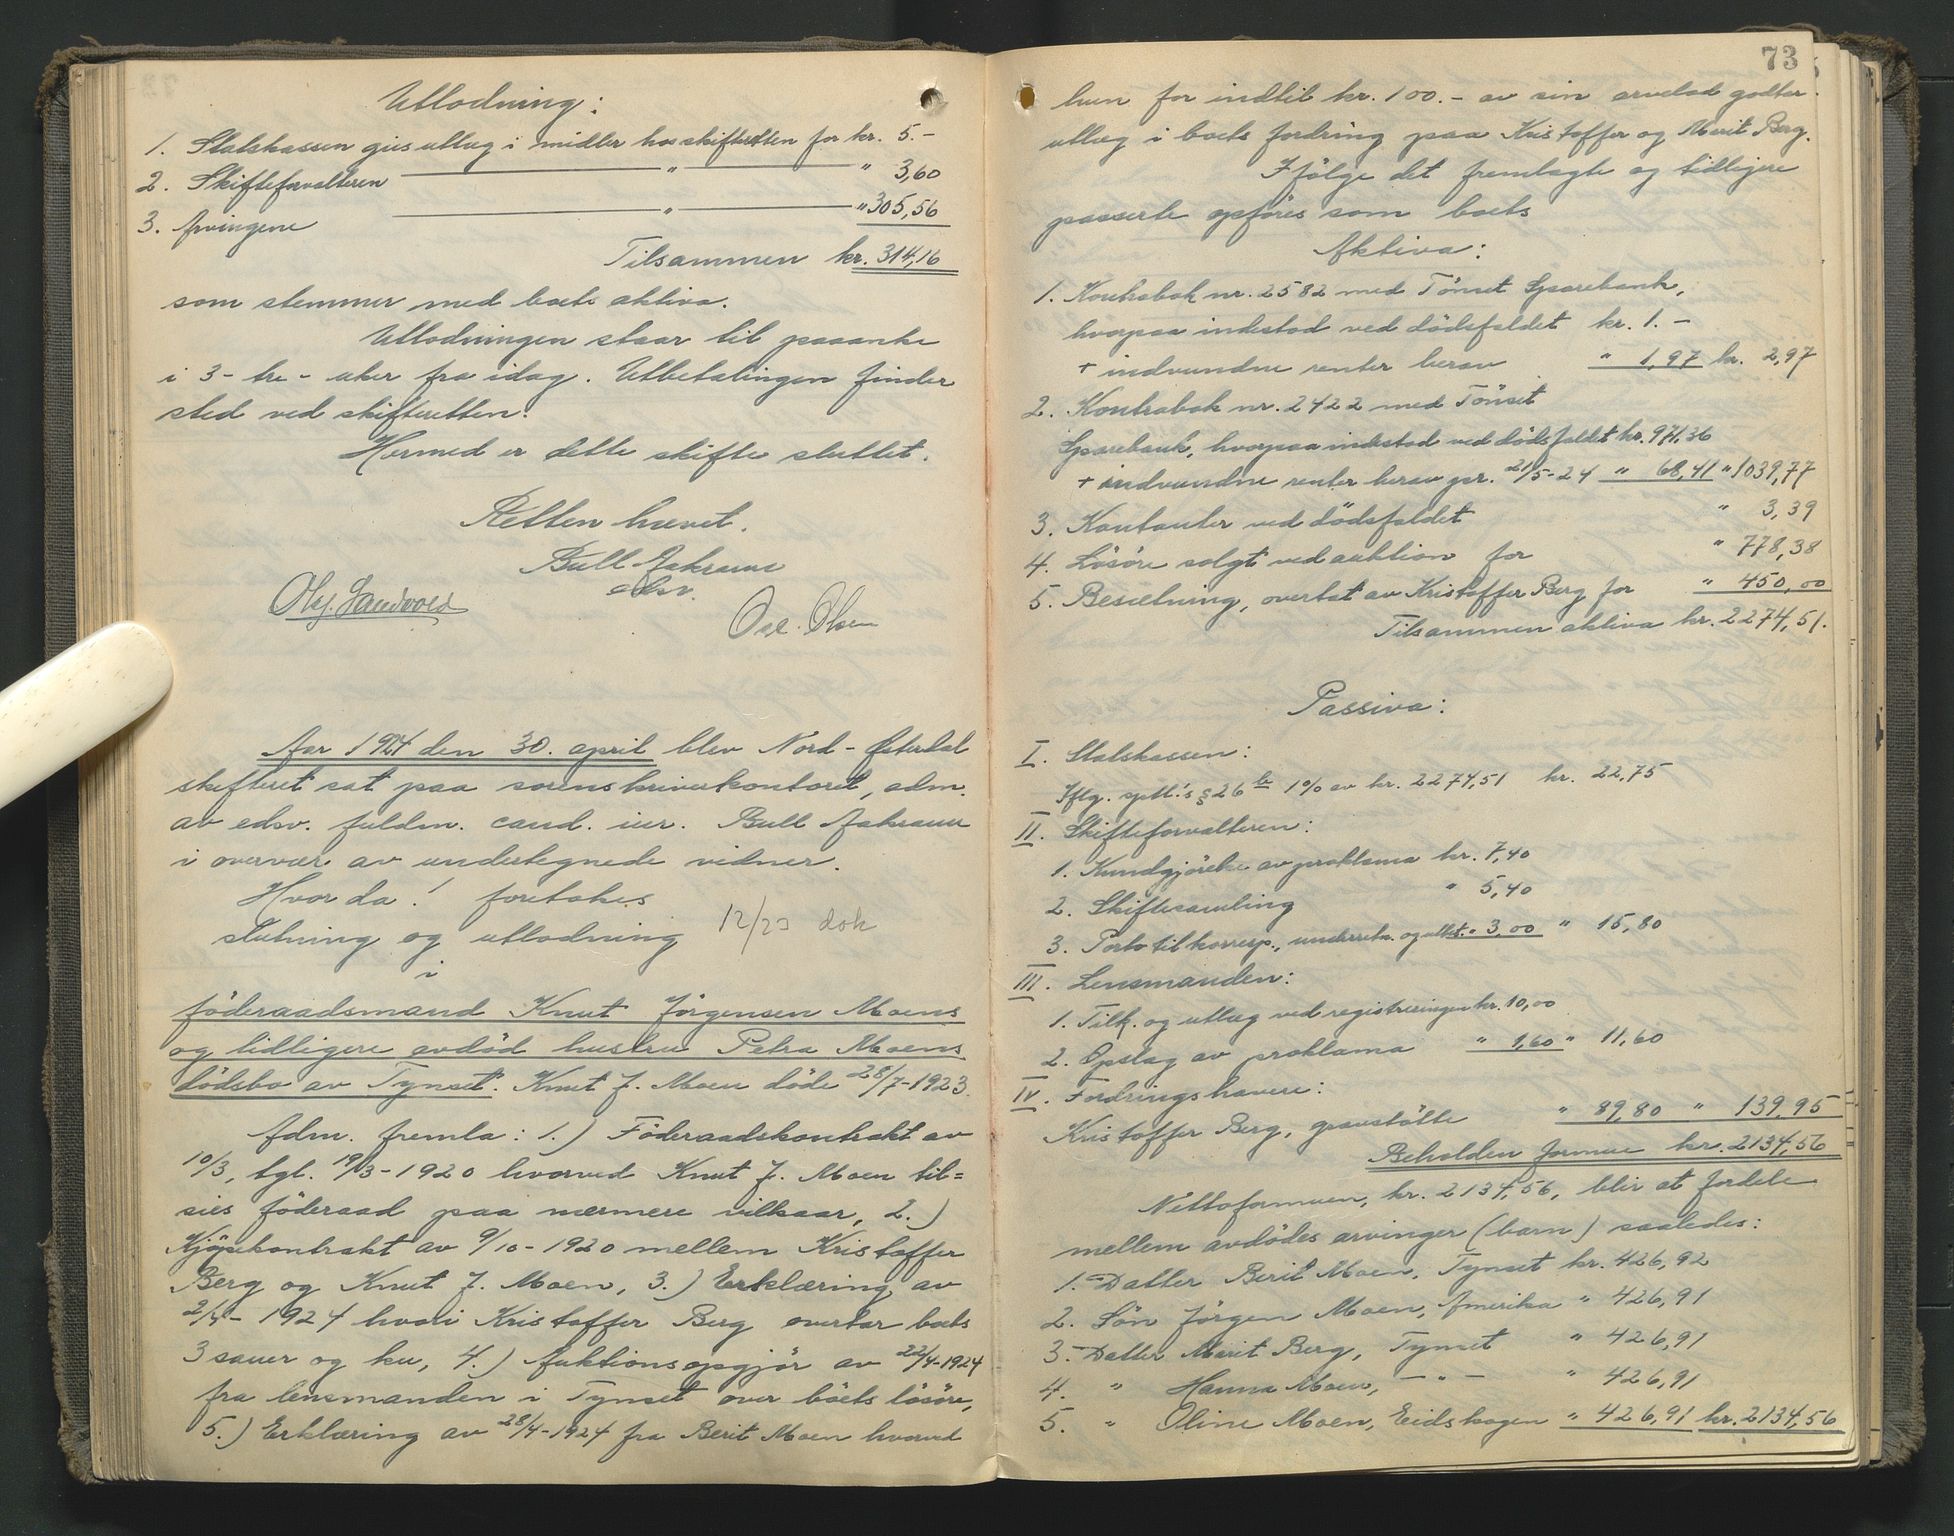 Utlodning:
1. Statskassen gis utlæg i midler hos skifteretten for kr. 5.-
2. Skifteforvalteren — " — " 3,60
3. Arvingene — " — " 305,56
Tilsammen kr. 314,16
som stemmer med boets aktiva.
Utlodningen staar til paaanke
i 3 - tre - uker fra idag. Utbetalingen finder
sted ved skifteretten.
Hermed er dette skifte sluttet.
Retten hævet.
Bull Aakrann
edsv.
Olaf Sandvold
Osc. Olsen
Aar 1924 den 30. april blev Nord-Østerdal
skifteret sat paa sorenskriverkontoret, adm.
av edsv. fuldm. cand. iur. Bull Aakrann
i overvær av undertegnede vidner.
Hvor da! foretokes
slutning og utlodning 12/23 dok
i
føderaadsmand Knut Jørgensen Moens
og tidligere avdød hustru Petra Moens
dødsbo av Tynset. Knut J. Moen døde 28/7-1923.
Adm. fremla: 1.) Föderaadskontrakt av
10/3, tgl. 19/3-1920 hvorved Knut J. Moen til=
sies föderaad paa nærmere vilkaar, 2.)
Kjøpekontrakt av 9/10-1920 mellem Kristoffer
Berg og Knut J. Moen, 3.) Erklæring av
2/4-1924 hvori Kristoffer Berg overtar boets
3 sauer og ku, 4.) Auktionsopgjör av 22/4-1924
fra lensmanden i Tynset over boets lösöre,
5.) Erklæring av 28/4-1924 fra Berit Moen hvorved
73
hun for indtil kr. 100.- av sin arvelod godtar
utlæg i boets fordring paa Kristoffer og Marit Berg.
Ifölge det fremlagte og tidligere
passerte opføres som boets
Aktiva:
1. Kontrabok nr. 2582 med Tönset Sparebank,
hvorpaa indestod ved dödsfaldet kr. 1.-
+ indvundne renter herav " 1,97 kr. 2,97
2. Kontrabok nr. 2422 med Tönset
Sparebank, hvorpaa indestod ved dödsfaldet kr. 971,36
+ indvundne renter herav pr. 21/5-24 " 68,41 " 1039,77
3. Kontanter ved dödsfaldet " 3,39
4. Lösöre solgt ved auktion for " 778,38
5. Besætning, overtat av Kristoffer Berg for " 450,00
Tilsammen aktiva kr. 2274,51.
Passiva:
I. Statskassen:
Iflg. sptl.'s § 26 1% av kr. 2274,51 kr. 22,75
II. Skifteforvalteren:
1. Kundgjörelse av proklama kr. 7,40
2. Skiftesamling " 5,40
3. Porto til korresp., underretn. og attst. " 3,00 " 15,80
III. Lensmanden:
1. Tilk. og utlæg ved registreringen kr. 10,00
2. Opslag av proklama " 1,60 " 11,60
IV. Fordringshavere:
Kristoffer Berg, gravstötte " 89,80 " 139,95
Beholden formue kr. 2134,56
Nettoformuen, kr. 2134,56, blir at fordele
mellem avdödes arvinger (barn) saaledes:
1. Datter Berit Moen, Tynset kr. 426,92
2. Sön Jörgen Moen, Amerika " 426,91
3. Datter Marit Berg, Tynset " 426,91
4. " Hanna Moen, - " - " 426,91
5. " Oline Moen, Eidskogen " 426,91 kr. 2134,56